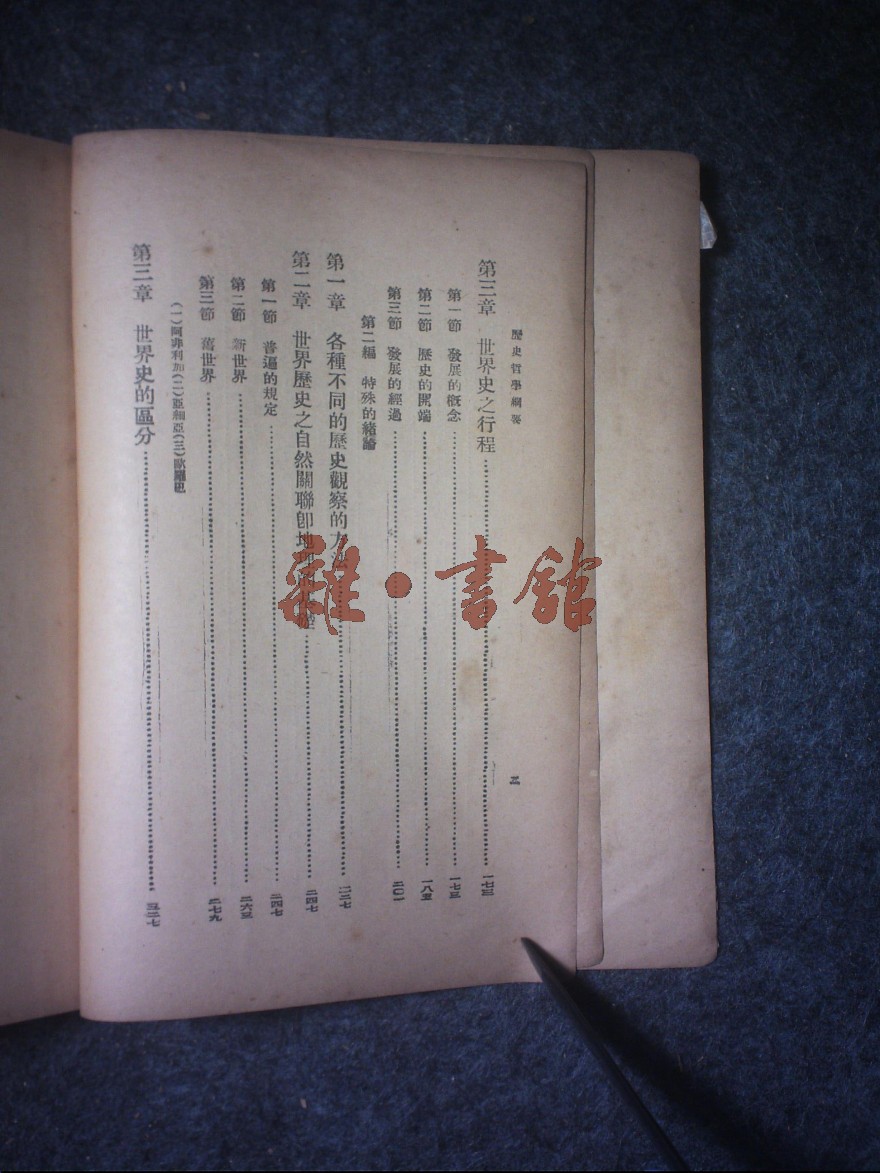 歷史哲學綱要
第三章 世界史之行程 一七三
第一節 發展的概念 一七三
第二節 歷史的開端 一八五
第三節 發展的經過 二〇一
第二編 特殊的緒論
第一章 各種不同的歷史觀察的方法 二二七
第二章 世界歷史之自然關聯卽地理的基礎 二四七
第一節 普遍的規定 二四七
第二節 新世界 二六五
第三節 舊世界 二七九
(一)阿非利加(二)亞細亞(三)歐羅巴
第三章 世界史的區分 三二七
雜•書館